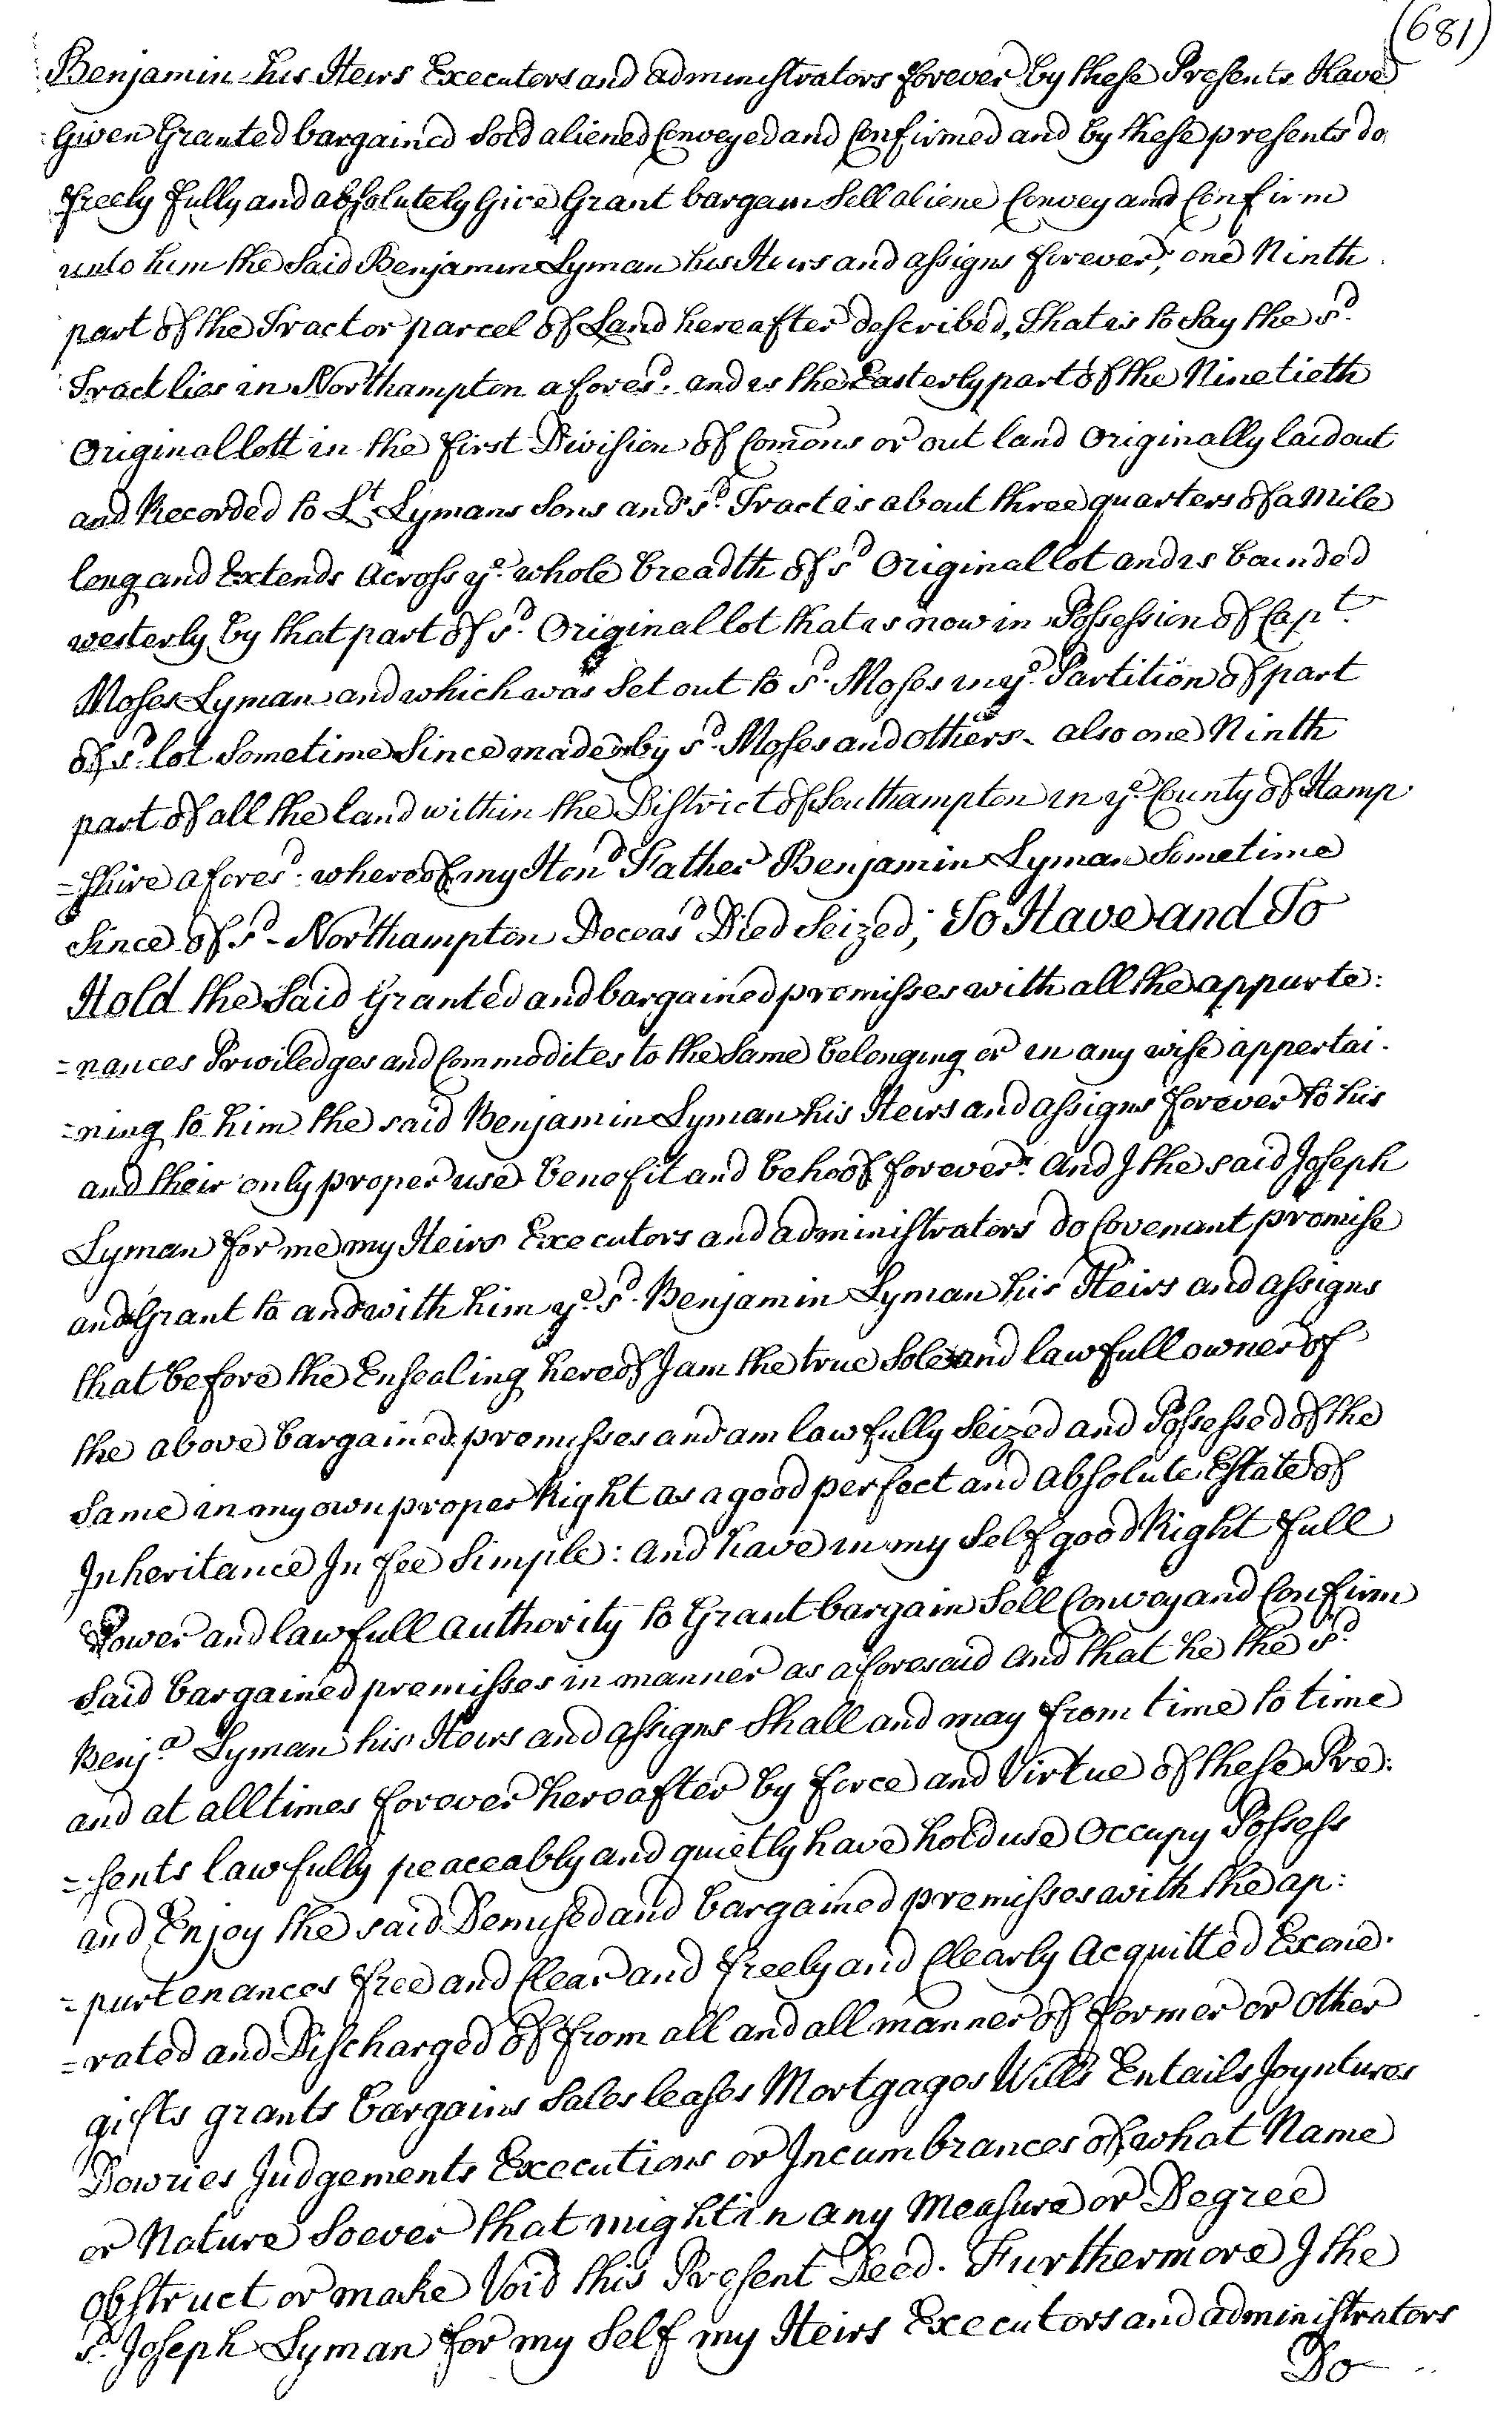 (681)
Benjamin his Heirs Executors and administrators forever by these Presents Have
Given Granted bargained Sold aliened Conveyed and Confirmed and by these presents do
freely fully and absolutely Give Grant bargain Sell aliene Convey and Confirm
unto him the Said Benjamin Lyman his Heirs and assigns forever; one Ninth
part of the Tract or parcel of Land hereafter described, That is to Say the sd.
Tract lies in Northampton aforesd. and is the Easterly part of the Ninetieth
Original lott in the first Division of Comons or out land Originally laid out
and Recorded to Lt. Lymans Sons and sd. Tract is about three quarters of a Mile
long and Extends Across ye. whole breadth of sd Original lot and is bounded
westerly by that part of sd. Original lot that is now in Possession of Capt.
Moses Lyman and which was Set out to sd. Moses in ye. Partition of part
of sd. lot Sometime Since made by sd. Moses and others. also one Ninth
part of all the land within the District of Southampton in ye. County of Hamp
=shire aforesd. whereof my Hond Father Benjamin Lyman Sometime
Since of sd. Northampton Deceasd Died Seized; To Have and To
Hold the Said Granted and bargained premisses with all the appurte:
=nances Priviledges and Commodites to the Same belonging or in any wise appertai.
=ning to him the said Benjamin Lyman his Heirs and assigns forever to his
and their only proper use benefit and behoof forever. And I the said Joseph
Lyman for me my Heirs Executors and administrators do Covenant promise
and Grant to and with him ye. sd. Benjamin Lyman his Heirs and assigns
that before the Ensealing hereof I am the true Sole and lawfull owner of
the above bargained premisses and am lawfully Seized and Possessed of the
Same in my own proper Right as a good perfect and absolute Estate of
Inheritance In fee Simple: and have in my Self good Right full
Power and lawfull authority to Grant bargain Sell Convey and Confirm
Said bargained premisses in manner as aforesaid and that he the sd.
Benja. Lyman his Heirs and assigns Shall and may from time to time
and at all times forever hereafter by force and Virtue of these Pre:
=sents lawfully peaceably and quietly have hold use Occupy Possess
and Enjoy the said Demised and bargained premisses with the ap:
=purtenances free and Clear and freely and Clearly Acquitted Exone.
=rated and Discharged of from all and all manner of former or other
gifts grants bargains Sales leases Mortgages Wills Entails Joyntures
Dowries Judgements Executions or Incumbrances of what Name
or Nature Soever that might in any Measure or Degree
obstruct or make Void this Present Deed. Furthermore I the
sd. Joseph Lyman for my Self my Heirs Executors and administrators
Do